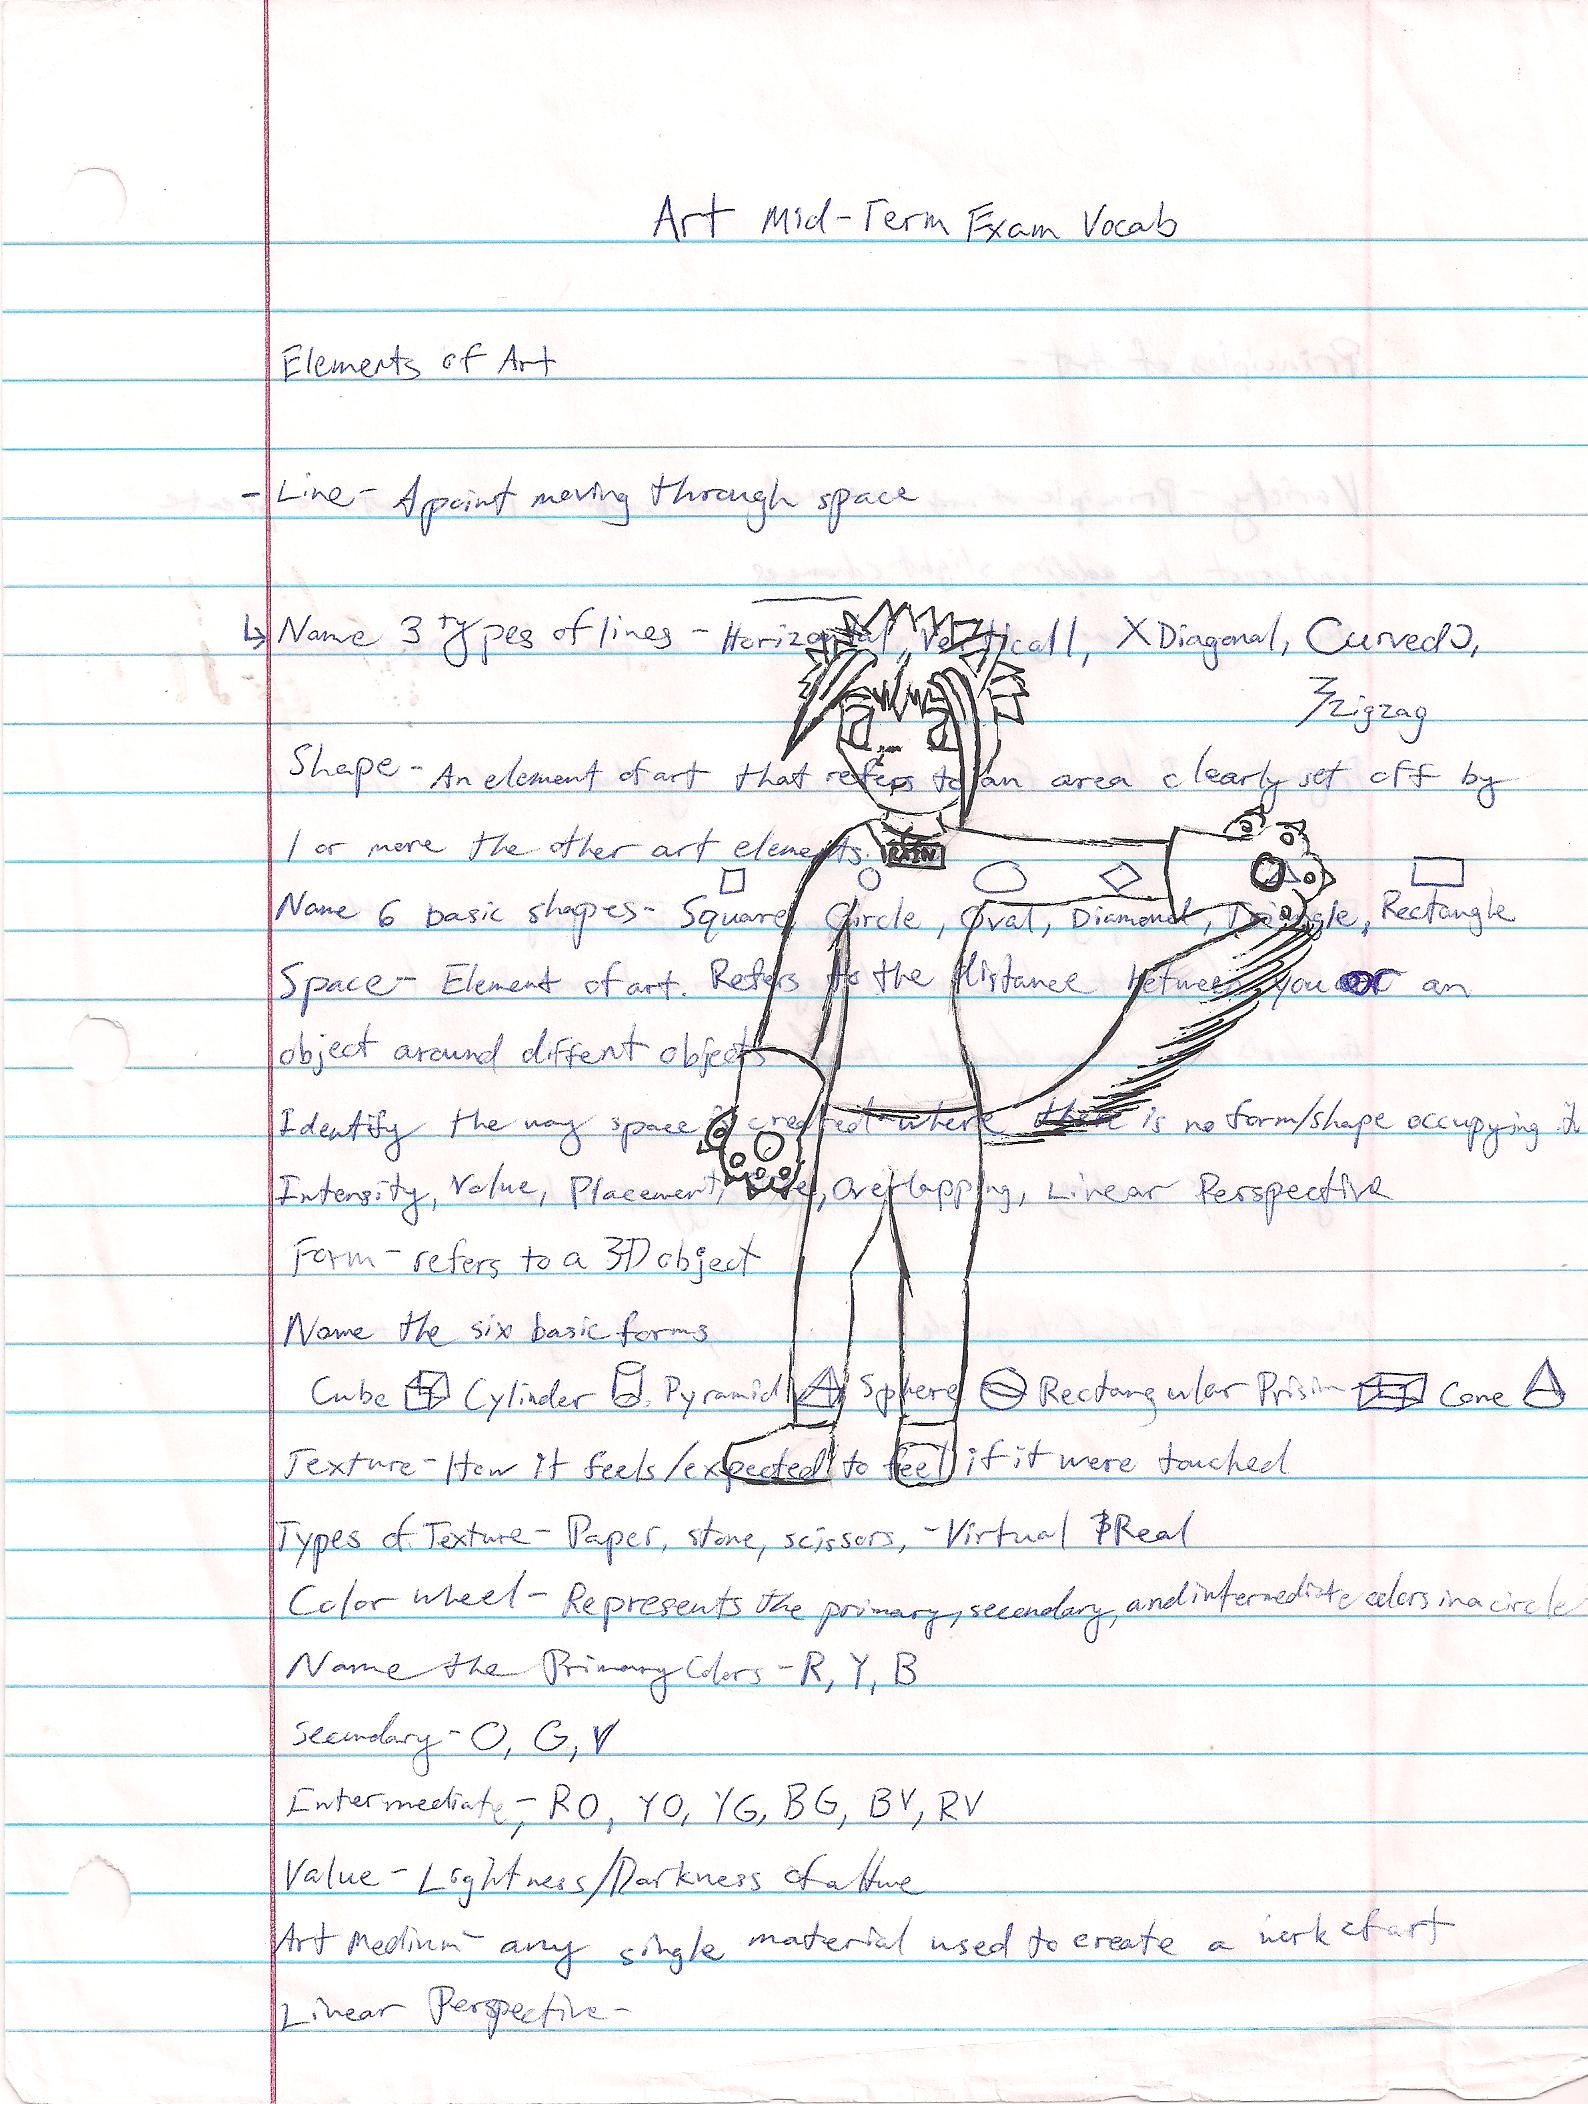 Art Mid-Term Exam Vocab
Elements of Art
- Line - A point moving through space
↳ Name 3 types of lines - Horizontal, Verticall, X Diagonal, Curved,
Zigzag
Shape - An element of art that refers to an area clearly set off by
1 or more the other art elements.
RAIN
Name 6 basic shapes - Square, Circle, Oval, Diamond, Triangle, Rectangle
Space - Element of art. Refers to the distance between you or an
object around diffent objects
Identify the way space is created where there is no form/shape occupying it
Intensity, Value, Placement, Size, Overlapping, Linear Perspective
Form - refers to a 3D object
Name the six basic forms
Cube Cylinder Pyramid Sphere Rectangular Prism Cone
Texture - How it feels/expected to feel if it were touched
Types of Texture - Paper, stone, scissors, - Virtual & Real
Color wheel - Represents the primary, secondary, and intermediate colors in a circle
Name the Primary Colors - R, Y, B
Secondary - O, G, V
Intermediate, - RO, YO, YG, BG, BV, RV
Value - Lightness/Darkness of a Hue
Art Medium - any single material used to create a work of art
Linear Perspective -